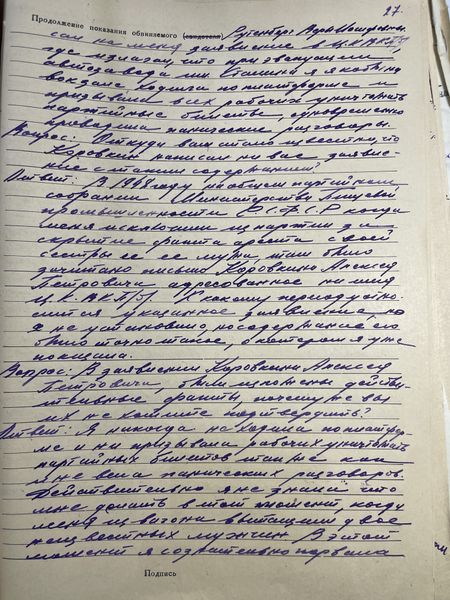 27.
Продолжение показания обвиняемого (свидетеля) Рутенберг
сал на меня заявление в Ц.К.ВКП/б/,
где излагал, что при эвакуации
автозавода им. Сталина я якобы на
вокзале ходила по платформе и
призывала всех рабочих уничтожать
партийные билеты, одновременно
проводила панические разговоры.
Вопрос: Откуда вам стало известно, что
Коровкин написал на вас заявле-
ние с таким содержанием?
Ответ: В 1948 году на общем партийном
собрании Министерства Пищевой
промышленности Р.С.Ф.С.Р когда
меня исключили из партии за
скрытие факта ареста своей
сестры и ее мужа, там было
зачитано письмо Коровкина Алексея
Петровича адресованное на имя
Ц.К.ВКП/б/. К какому периоду отно-
сится указанное заявление,
я не установила, но содержание его
было точно такое, о котором я уже
показала.
Вопрос: В заявлении Коровкина Алексея
Петровича, были изложены действи-
тельные факты, почему же вы
их не хотите подтвердить?
Ответ: Я никогда не ходила по платфор-
ме и не призывала рабочих уничтожать
партийных билетов также как
и не вела панических разговоров.
Действительно я не знала что
мне делать в тот момент, когда
меня из вагона вытащили двое
неизвестных мужчин В этот
момент я сознательно порвала
Подпись